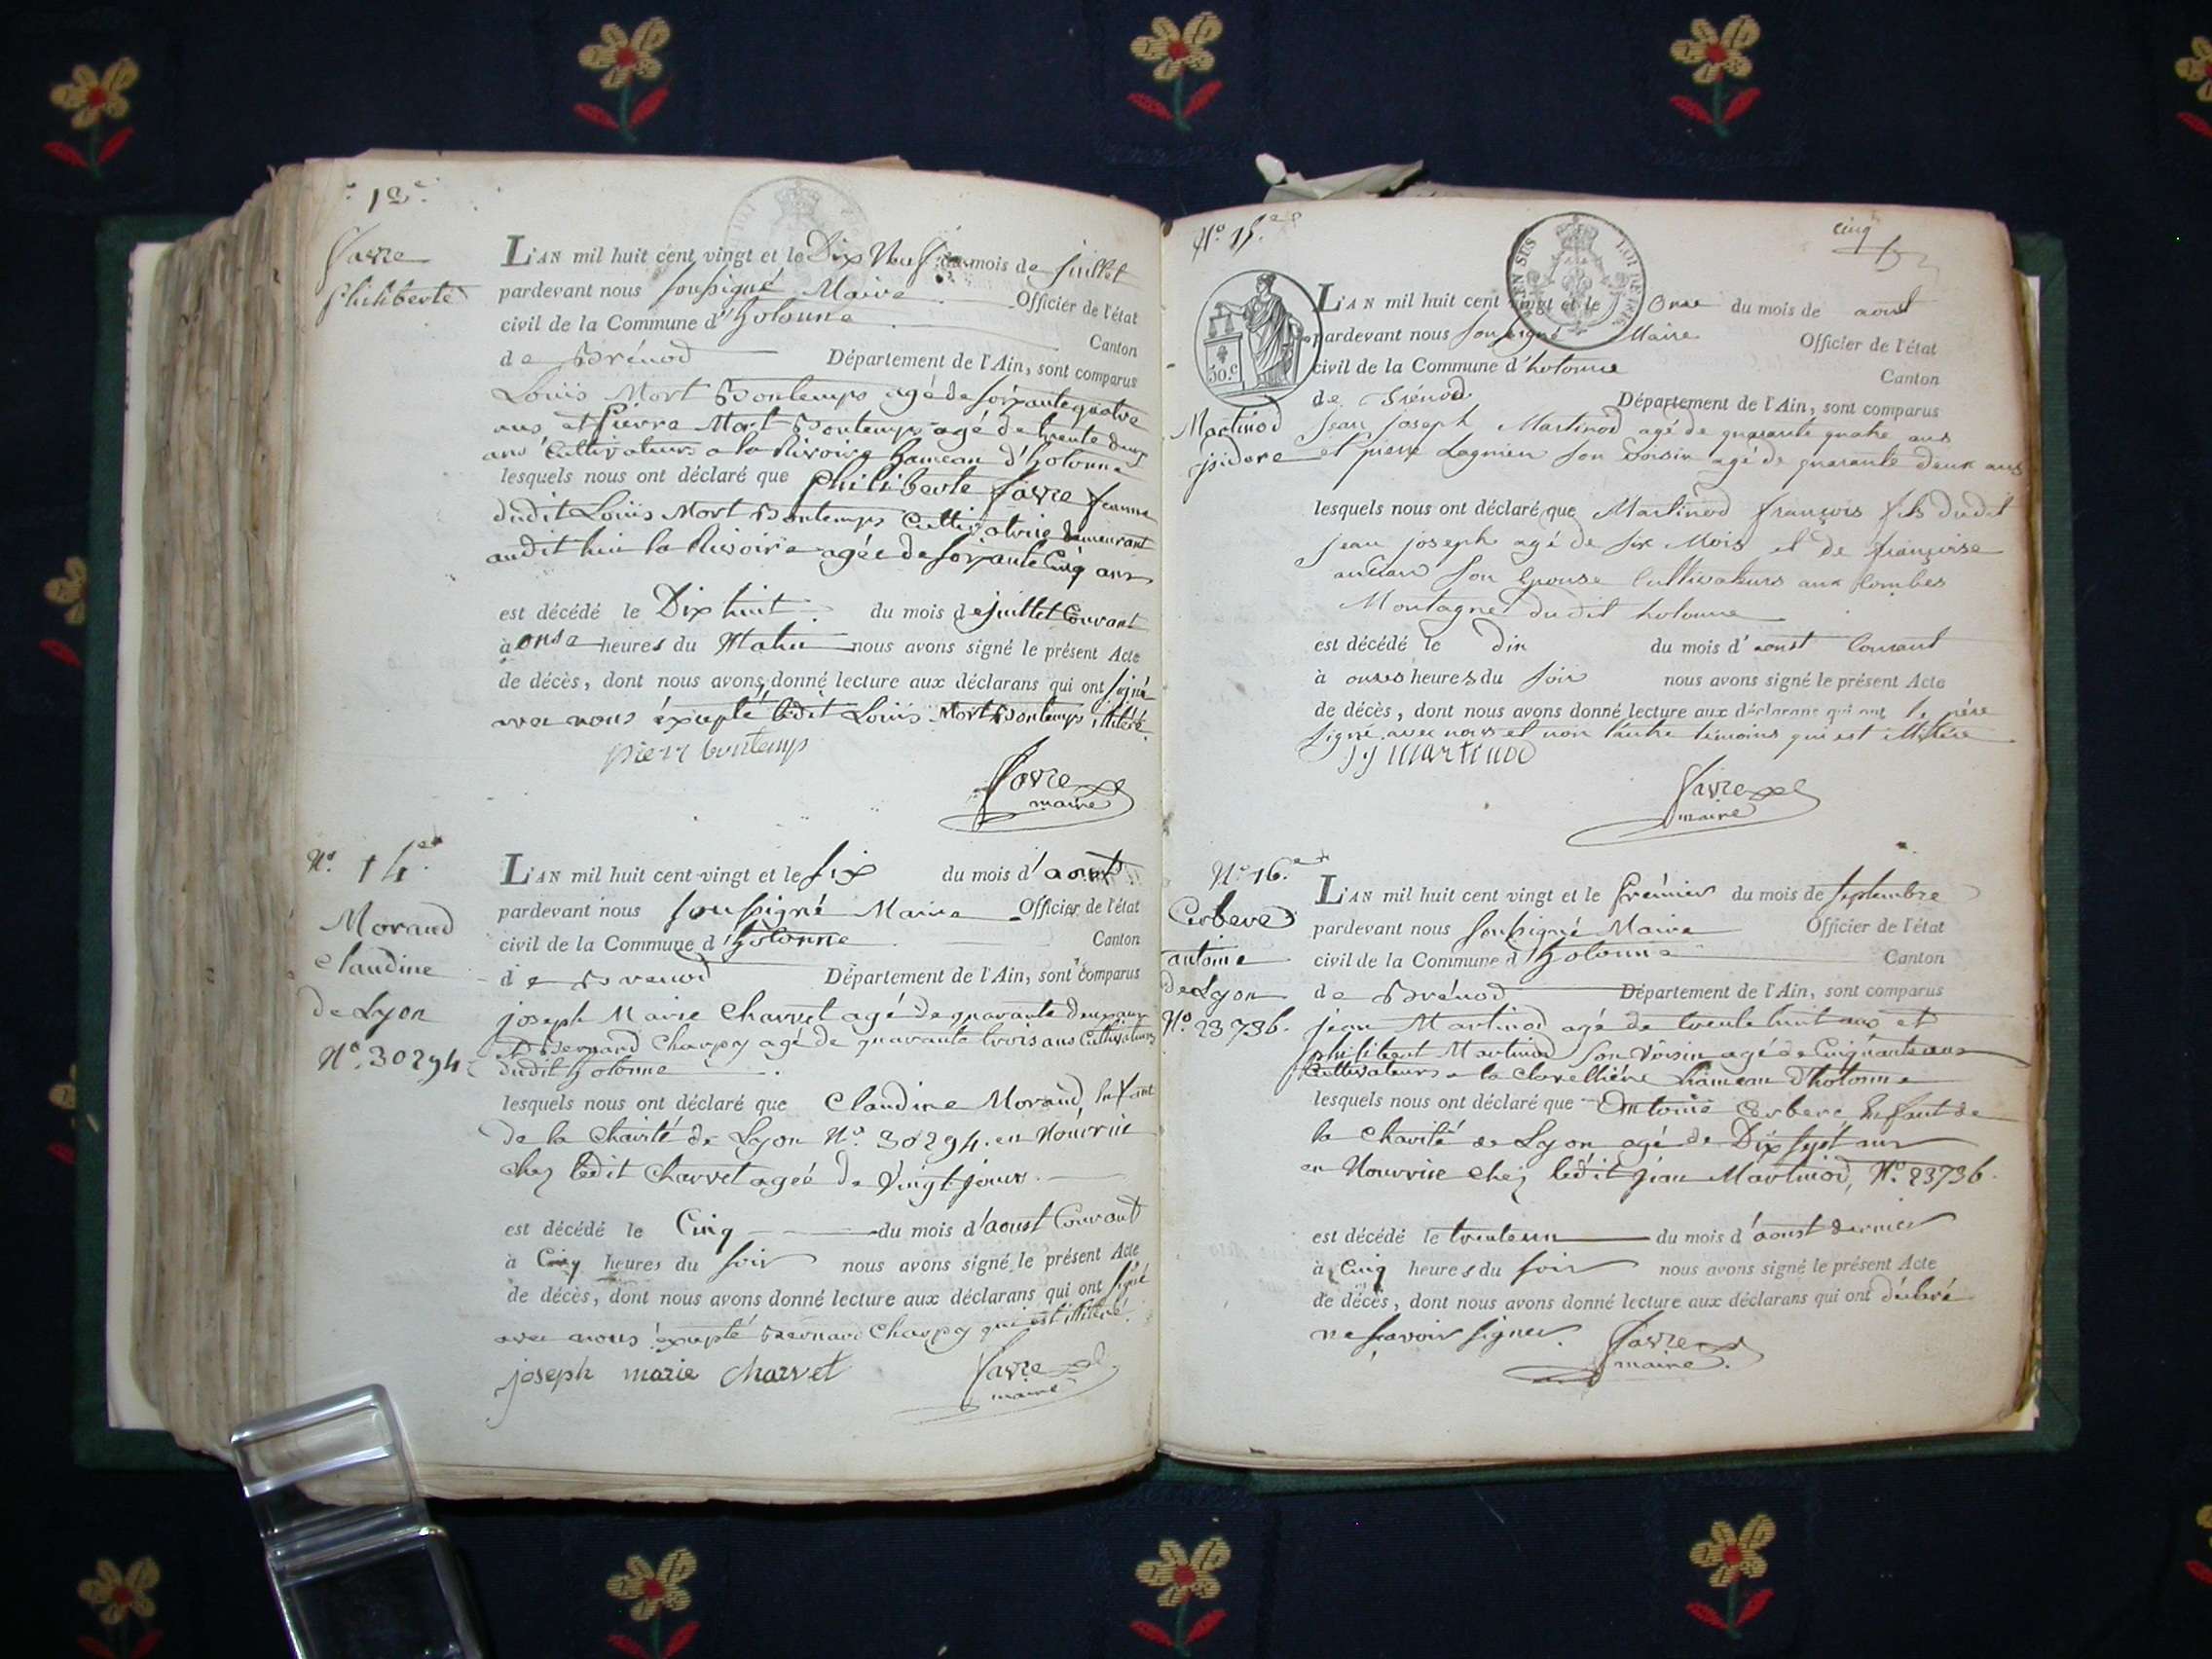 13e.
favre
philiberte
L'AN mil huit cent vingt et le Dix Neuf du mois de juillet
pardevant nous soussigné Maire Officier de l'état
civil de la Commune d'hotonne
Canton
de Brénod Département de l'Ain, sont comparus
Louis Mort Bontemps agé de soixante quatre
ans et Pierre Mort Bontemps agé de trente deux
ans Cultivateurs a la Rivoire hameau d'hotonne
lesquels nous ont déclaré que philiberte favre femme
dudit Louis Mort Bontemps Cultivatrice demeurant
audit lieu la Rivoire agée de soixante Cinq ans
est décédé le Dix huit du mois de juillet Courant
à onse heures du Matin nous avons signé le présent Acte
de décès, dont nous avons donné lecture aux déclarans qui ont signé
avec nous éxcepté ledit Louis Mort Bontemps illitéré
pierr bontemp
favre
maire
No. 14e.
Morand
Claudine
de Lyon
No. 30294
L'AN mil huit cent vingt et le six du mois d'aout
pardevant nous soussigné Maire Officier de l'état
civil de la Commune d'hotonne Canton
de Brenod Département de l'Ain, sont comparus
joseph Marie Charvet agé de quarante deux ans
et Bernard Charpy agé de quarante trois ans Cultivateurs
dudit hotonne
lesquels nous ont déclaré que Claudine Morand, Enfant
de la Charité de Lyon No. 30294. en Nourrice
chez ledit Charvet ageé de Vingt jours.
est décédé le Cinq du mois d'aoust Courant
à Cinq heures du soir nous avons signé le présent Acte
de décès, dont nous avons donné lecture aux déclarans qui ont signé
avec nous éxcepté Bernard Charpy qui est illitéré.
joseph marie charvet
favre
maire
No. 15e
cinq
EN SUS
LOI DE 1816
50.c
Martinod
isidore
L'AN mil huit cent vingt et le Onse du mois de aout
pardevant nous soussigné Maire Officier de l'état
civil de la Commune d'hotonne
Canton
de Brénod Département de l'Ain, sont comparus
Jean joseph Martinod agé de quarante quatre ans
et pierre Lagnieu son voisin agé de quarante deux ans
lesquels nous ont déclaré que Martinod françois fils dudit
jean joseph agé de six Mois et de françoise
son Epouse Cultivateurs aux Combes
Montagne dudit hotonne
est décédé le dix du mois d'aoust Courant
à onses heures du soir nous avons signé le présent Acte
de décès, dont nous avons donné lecture aux déclarans qui ont le père
signé avec nous et non l'autre témoins qui est illitéré
jj martinod
favre
maire
No. 16.e
Cerbere
antoine
de Lyon
No. 23736.
L'AN mil huit cent vingt et le Prémier du mois de Septembre
pardevant nous soussigné Maire Officier de l'état
civil de la Commune d'hotonne Canton
de Brénod Département de l'Ain, sont comparus
jean Martinod agé de trente huit ans et
philibert Martinod son Voisin agé de Cinquante ans
Cultivateurs a la Clavellière hameau d'hotonne
lesquels nous ont déclaré que Antoine Cerbere Enfant de
la Charité de Lyon agé de Dix sept ans
en Nourrice chez ledit jean Martinod, No. 23736.
est décédé le trente un du mois d'aoust dernier
à Cinq heures du soir nous avons signé le présent Acte
de décès, dont nous avons donné lecture aux déclarans qui ont déclaré
ne sçavoir signer.
favre
maire.